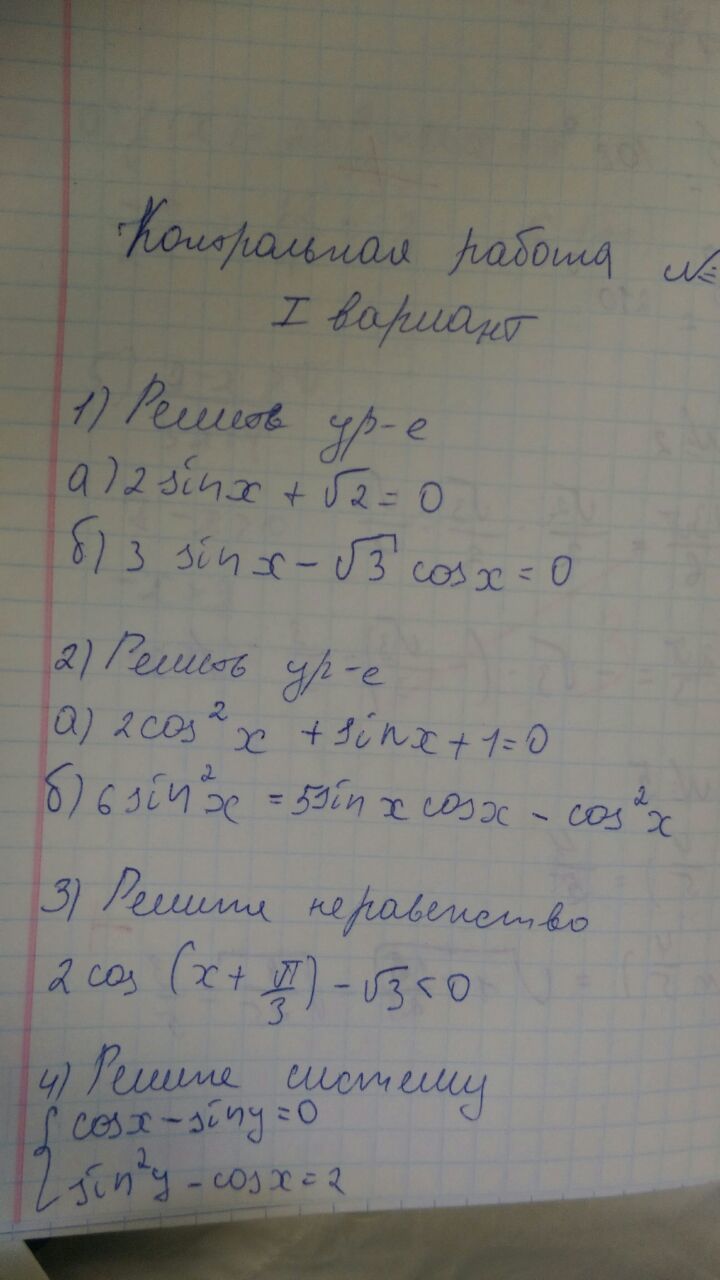 Контрольная работа №
I вариант
1) Решить ур-е
а) 2 sin x + √2 = 0
б) 3 sin x - √3 cos x = 0
2) Решить ур-е
а) 2cos²x + sin x + 1 = 0
б) 6 sin²x = 5sin x cos x - cos²x
3) Решите неравенство
2 cos (x + π/3) - √3 < 0
4) Решите систему
{ cos x - sin y = 0
sin²y - cos x = 2